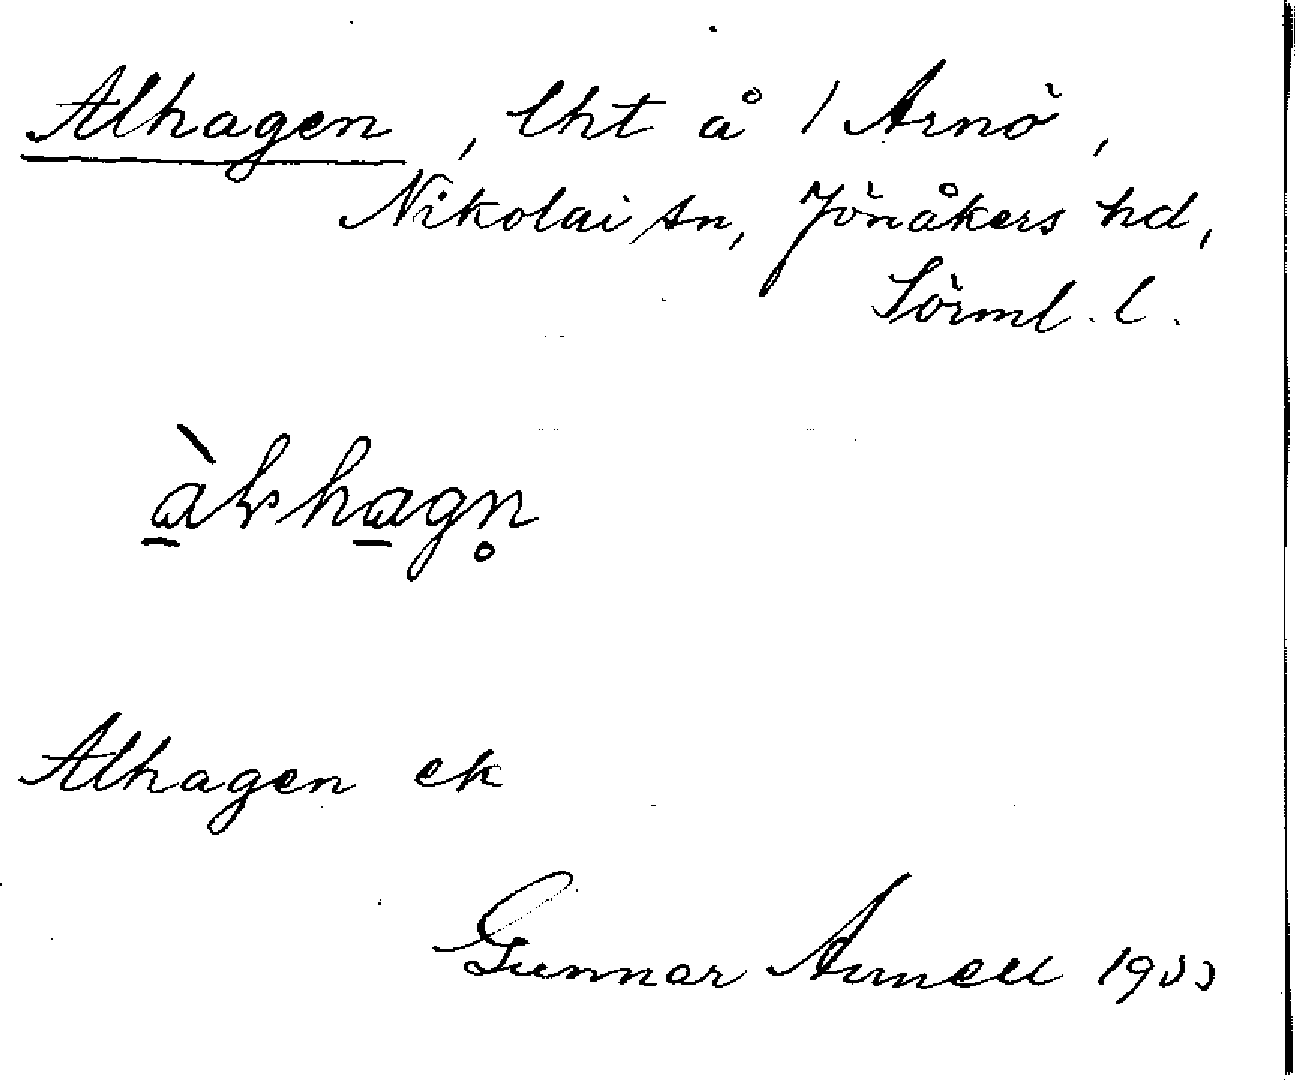 Alhagen, lht å / Arnö,
Nikolai sn, Jönåkers hd,
Sörml. l.
àlhagn̥
Alhagen ek
Gunnar Arnell